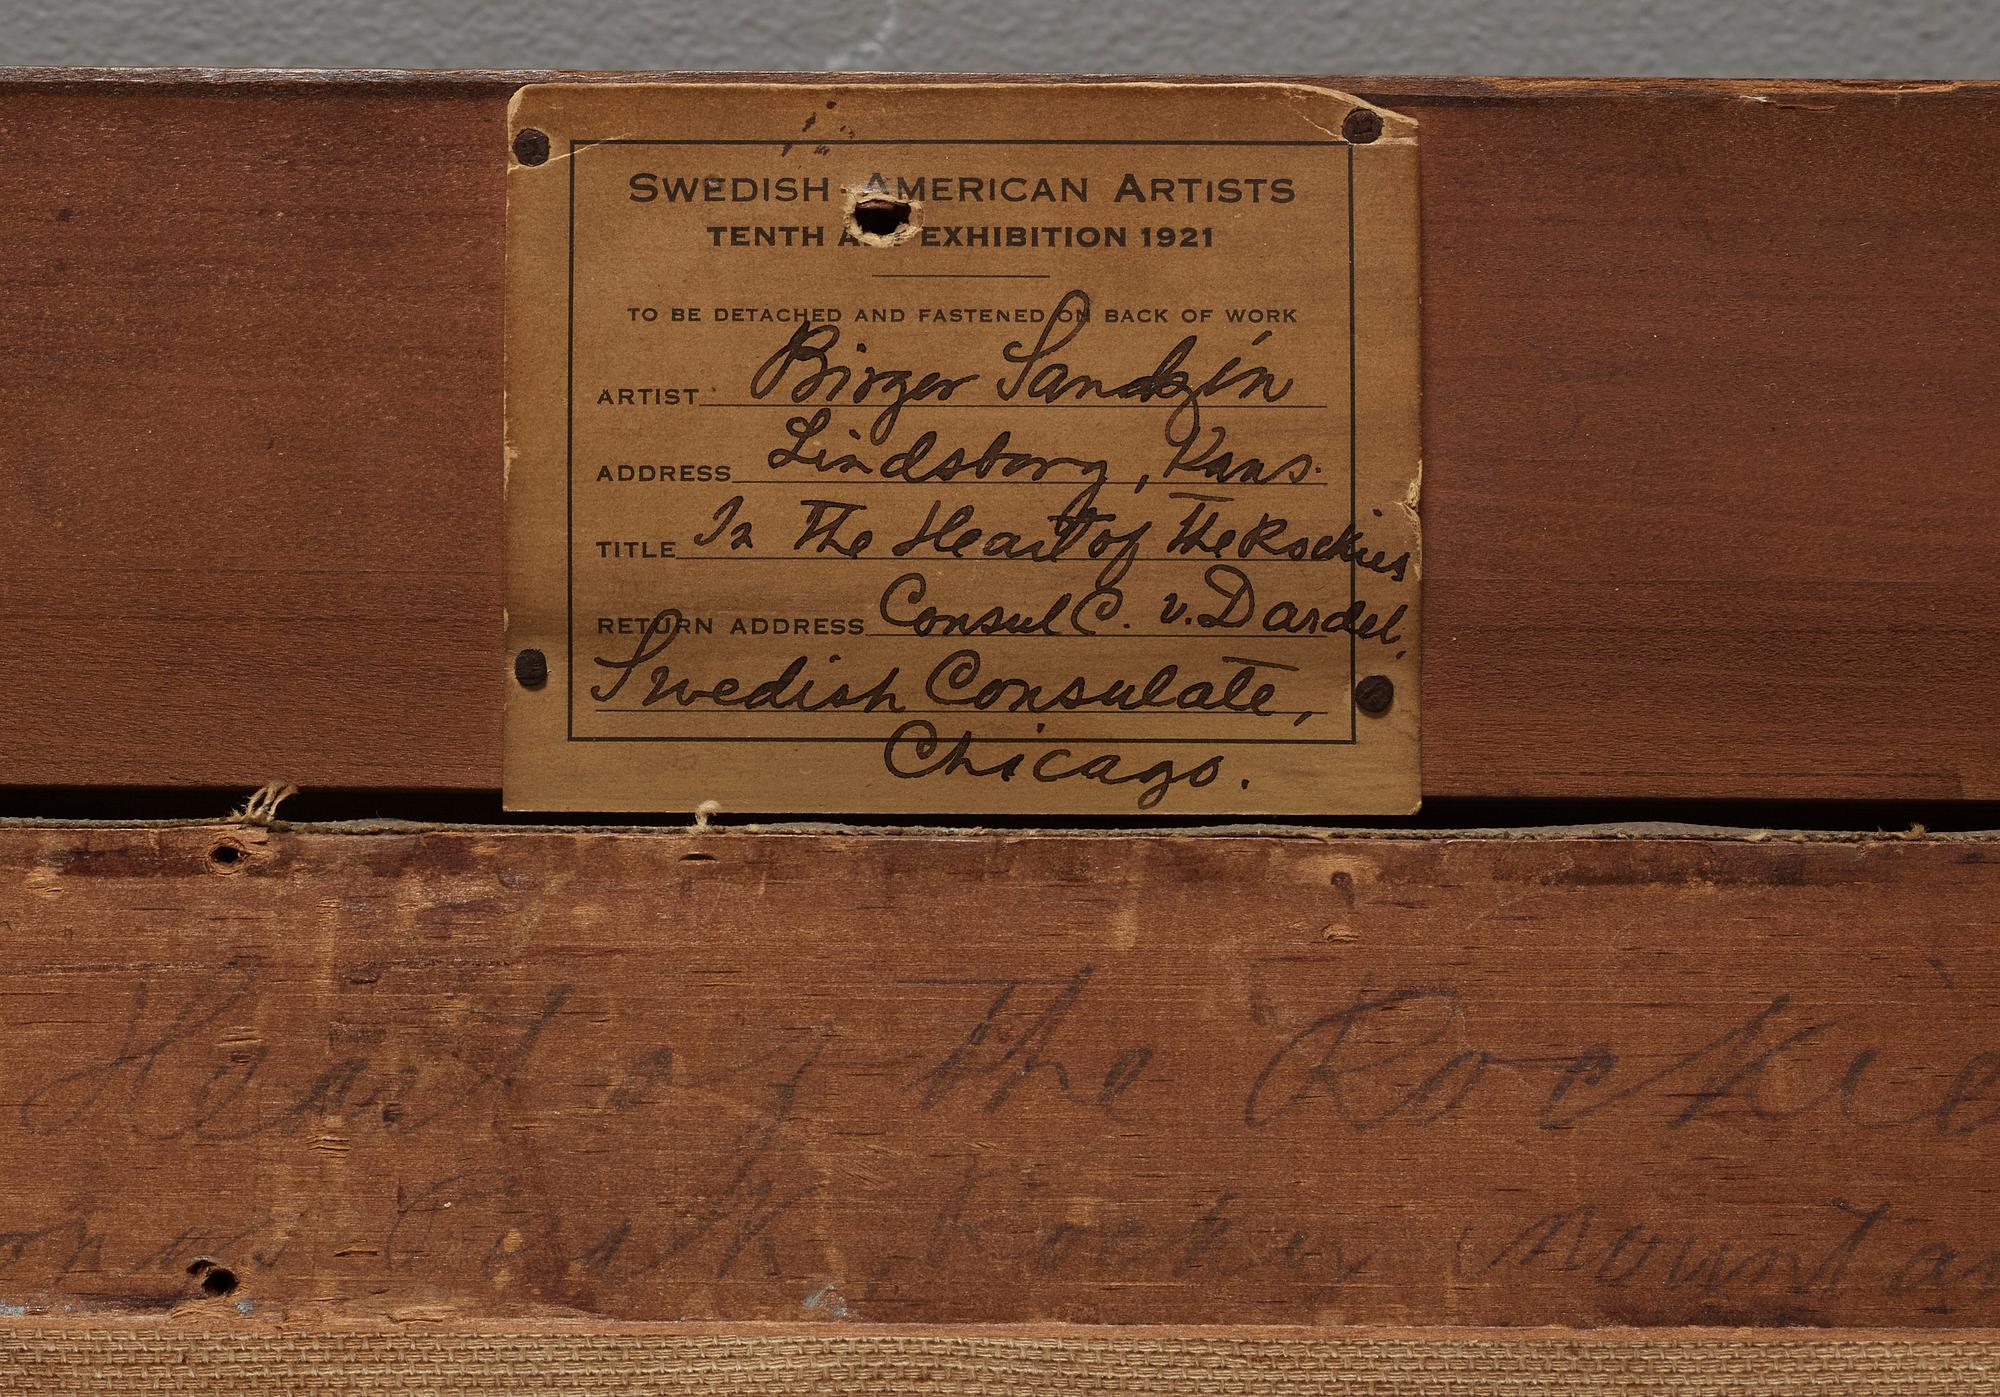 SWEDISH · AMERICAN ARTISTS
TENTH A EXHIBITION 1921
TO BE DETACHED AND FASTENED ON BACK OF WORK
ARTIST Birger Sandzén
ADDRESS Lindsborg, Kans.
TITLE In The Heart of The Rockies
RETURN ADDRESS Consul C. v. Dardel,
Swedish Consulate,
Chicago.
Heart of the Rockie
Rocky Mountai